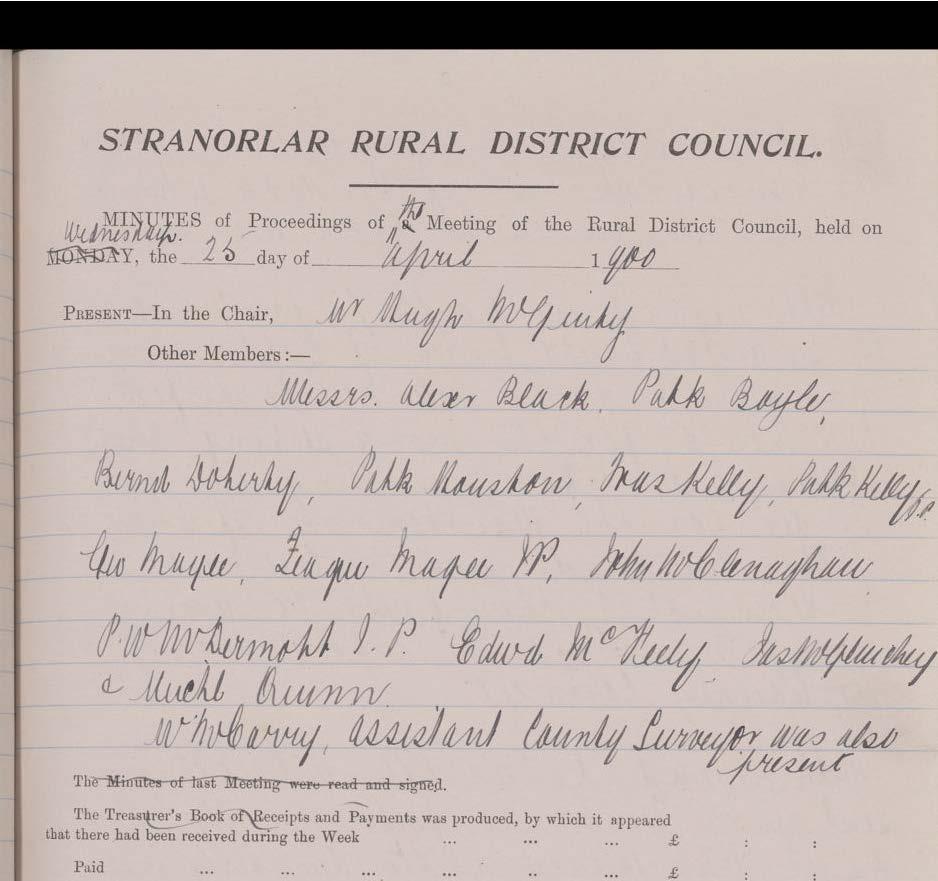 STRANORLAR RURAL DISTRICT COUNCIL.
MINUTES of Proceedings of the Meeting of the Rural District Council, held on
Wednesday.
MONDAY, the 25 day of April 1900
PRESENT—In the Chair, Mr Hugh McGinty
Other Members:—
Messrs. Alexr Black, Patk Boyle,
Bernd Doherty, Patk Houston, Kelly, Patk Kelly J.P.
Geo Magee, Teague Magee JP, John McClenaghan
P. W McDermott J. P. Edwd McFeely, Jas
& Michl Quinn
McCarry, Assistant County Surveyor was also
present
The Minutes of last Meeting were read and signed.
The Treasurer's Book of Receipts and Payments was produced, by which it appeared
that there had been received during the Week ... ... ... £ : :
Paid ... ... ... ... .. ... £ : :